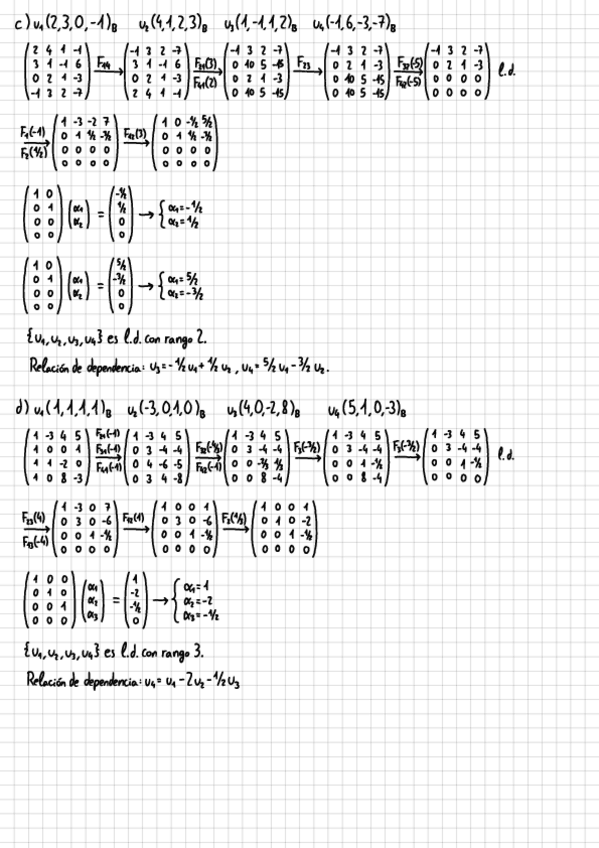 c) u₁(2,3,0,-1)B u₂(4,1,2,3)B u₃(1,-1,1,2)B u₄(-1,6,-3,-7)B
(2 4 1 -1 / 3 1 -1 6 / 0 2 1 -3 / -1 3 2 -7) F₁₄→ (-1 3 2 -7 / 3 1 -1 6 / 0 2 1 -3 / 2 4 1 -1) F₂₁(3) F₄₁(2)→ (-1 3 2 -7 / 0 10 5 -15 / 0 2 1 -3 / 0 10 5 -15) F₂₃→ (-1 3 2 -7 / 0 2 1 -3 / 0 10 5 -15 / 0 10 5 -15) F₃₂(-5) F₄₂(-5)→ (-1 3 2 -7 / 0 2 1 -3 / 0 0 0 0 / 0 0 0 0) l.d.
F₁(-1) F₂(1/2)→ (1 -3 -2 7 / 0 1 1/2 -3/2 / 0 0 0 0 / 0 0 0 0) F₁₂(3)→ (1 0 -1/2 5/2 / 0 1 1/2 -3/2 / 0 0 0 0 / 0 0 0 0)
(1 0 / 0 1 / 0 0 / 0 0) (α₁ / α₂) = (-1/2 / 1/2 / 0 / 0) → { α₁=-1/2 α₂=1/2
(1 0 / 0 1 / 0 0 / 0 0) (α₁ / α₂) = (5/2 / -3/2 / 0 / 0) → { α₁=5/2 α₂=-3/2
{u₁,u₂,u₃,u₄} es l.d. con rango 2.
Relación de dependencia: u₃=-1/2u₁+1/2 u₂ , u₄=5/2 u₁-3/2 u₂.
d) u₁(1,1,1,1)B u₂(-3,0,1,0)B u₃(4,0,-2,8)B u₄(5,1,0,-3)B
(1 -3 4 5 / 1 0 0 1 / 1 1 -2 0 / 1 0 8 -3) F₂₁(-1) F₃₁(-1) F₄₁(-1)→ (1 -3 4 5 / 0 3 -4 -4 / 0 4 -6 -5 / 0 3 4 -8) F₄₂(-1)→ (1 -3 4 5 / 0 3 -4 -4 / 0 0 -2/3 1/3 / 0 0 8 -4) F₃(-3/2)→ (1 -3 4 5 / 0 3 -4 -4 / 0 0 1 -1/2 / 0 0 8 -4) F₃(-3/2)→ (1 -3 4 5 / 0 3 -4 -4 / 0 0 1 -1/2 / 0 0 0 0) l.d.
F₂₃(4) F₁₃(-4)→ (1 -3 0 7 / 0 3 0 -6 / 0 0 1 -1/2 / 0 0 0 0) F₁₂(1)→ (1 0 0 1 / 0 3 0 -6 / 0 0 1 -1/2 / 0 0 0 0) F₂(1/3)→ (1 0 0 1 / 0 1 0 -2 / 0 0 1 -1/2 / 0 0 0 0)
(1 0 0 / 0 1 0 / 0 0 1 / 0 0 0) (α₁ / α₂ / α₃) = (1 / -2 / -1/2 / 0) → { α₁=1 α₂=-2 α₃=-1/2
{u₁,u₂,u₃,u₄} es l.d. con rango 3.
Relación de dependencia: u₄= u₁-2u₂-1/2u₃